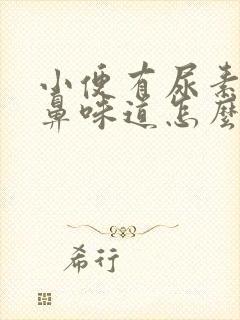 小便有尿素
鼻味道怎麼
希行